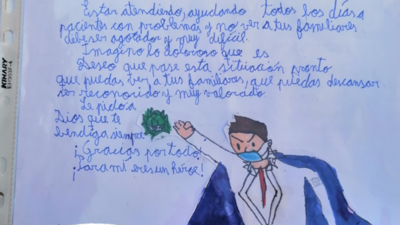 Estar atendiendo, ayudando todos los días a
pacientes con problemas, y no ver a tus familiares
debe ser agotador y muy difícil.
Imagino lo doloroso que es
Deseo que pase esta situación pronto
que puedas ver a tus familiares, que puedas descansar
ser reconocido y muy valorado
Le pido a
Dios que te
bendiga siempre
¡Gracias por todo!
¡Para mí eres un héroe!
KINARY